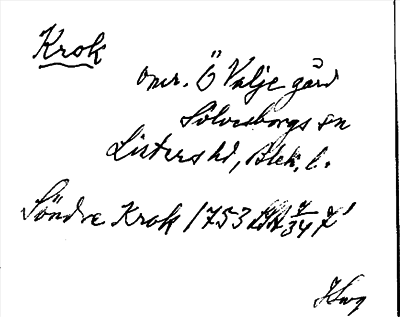 Krok
omr. Ö Valje gård
Sölvesborgs sn
Listers hd, Blek. l.
Söndre Krok 1753 LSA 7/34 7'